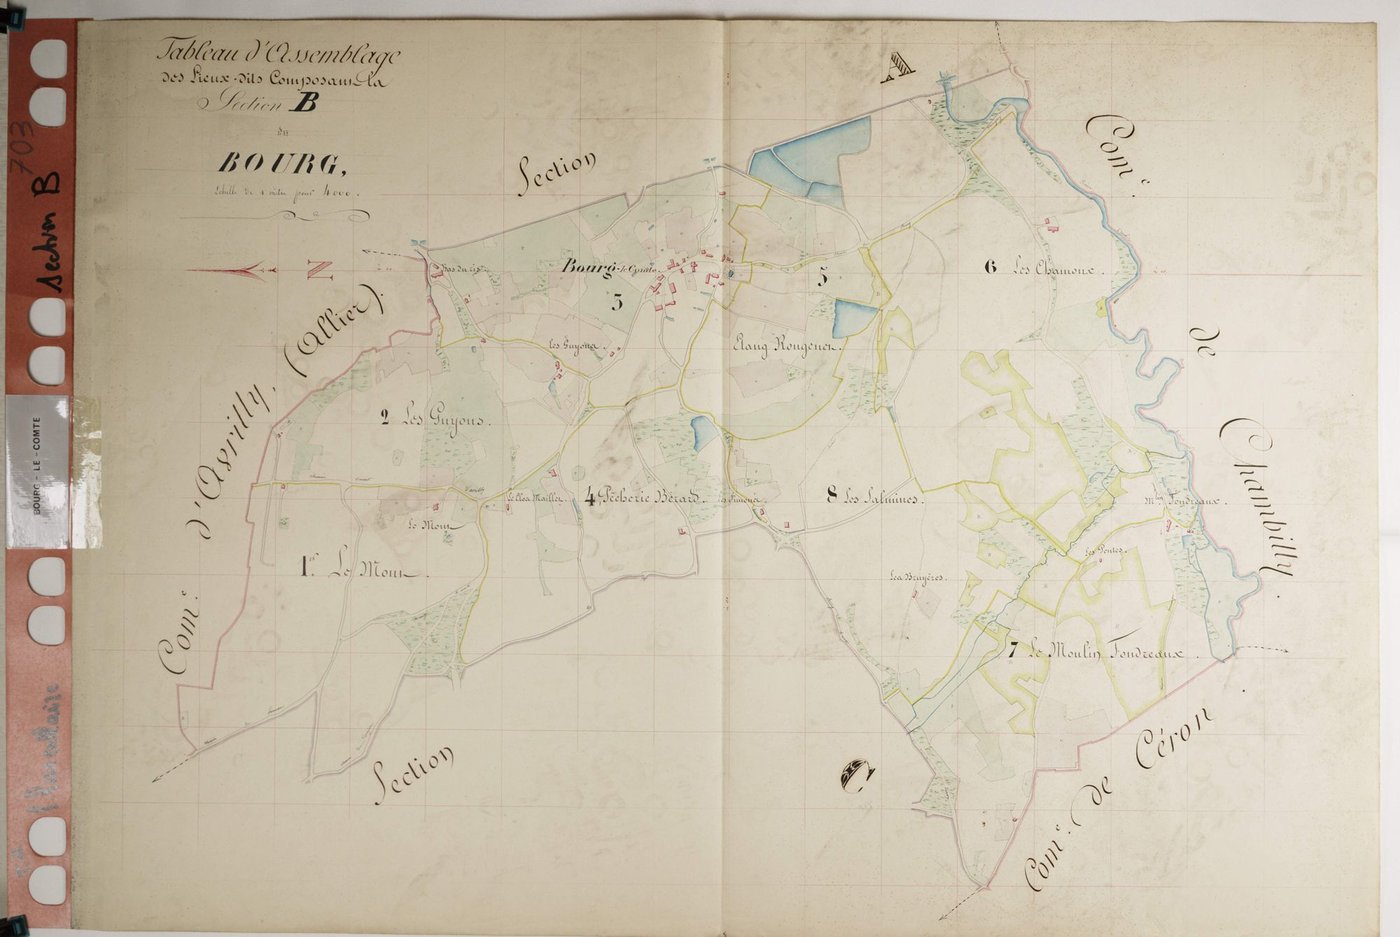 Tableau d'Assemblage
des Lieux-dits Composant la
Section B
du
BOURG,
Echelle de 1 mètre pour 4000.
N
Section
A
Com.e
de
Chambilly.
Com.e
d'Avrilly, (Allier).
Bourg-le-Comte
3
5
6 Les Chamoux.
Les Guyons
Etang Rougener.
2 Les Guyons.
Le Clos Maillet
4 Pêcherie Bérard.
8 Les Salmines.
M.in Fondreaux.
Le Mont
1.er Le Mont.
Les Pentes.
Les Bruyères.
7 Le Moulin Fondreaux
Section
C
Com.e de Céron
703
Section B
BOURG - LE - COMTE